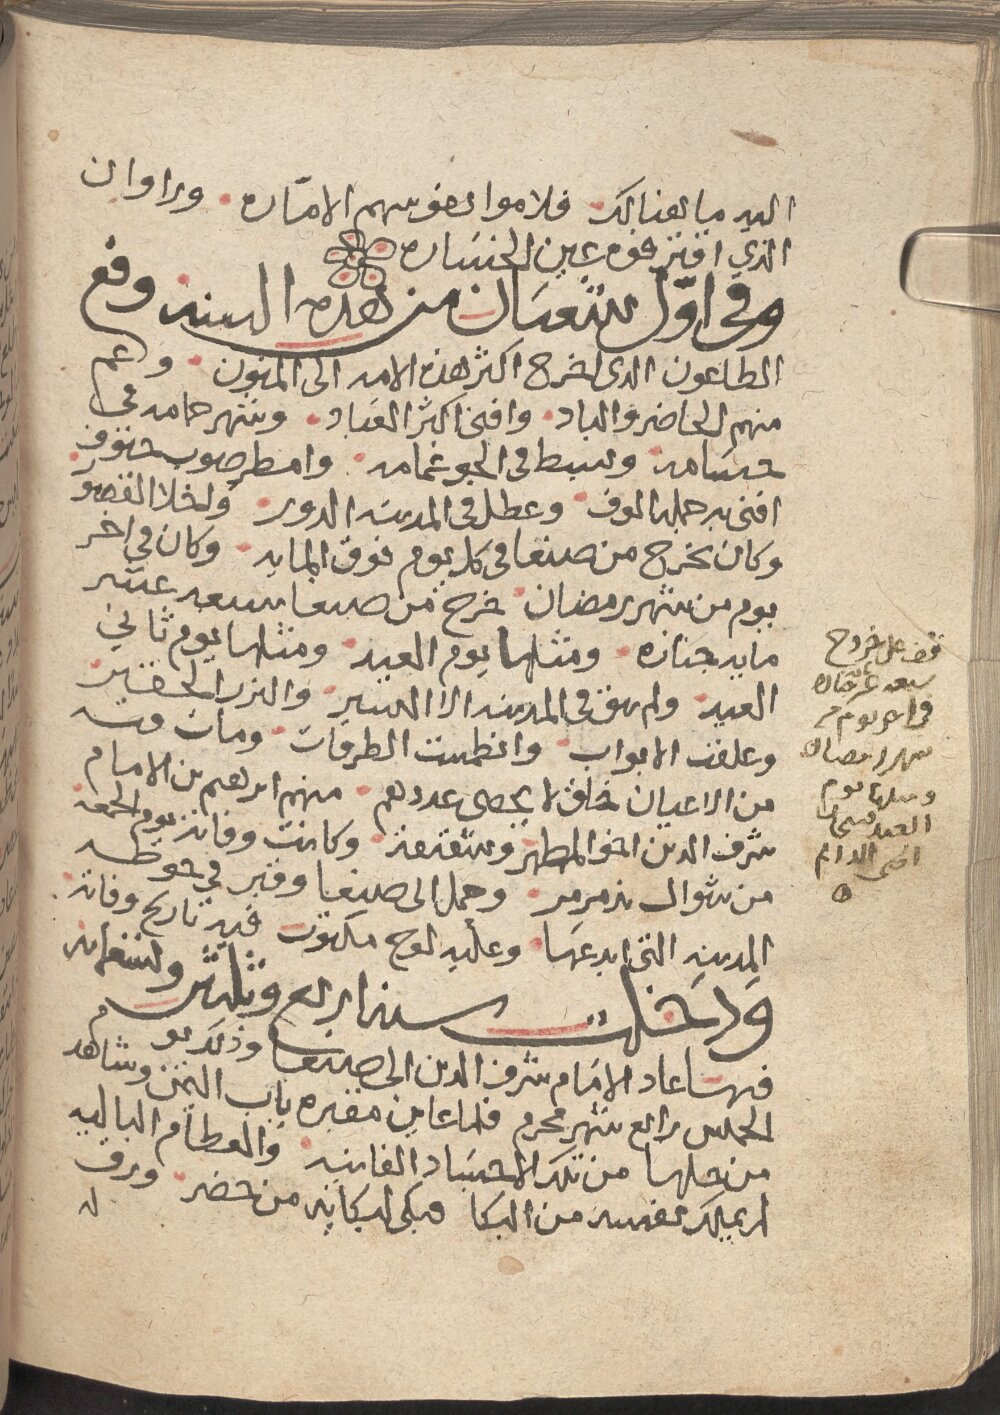 اليه ما يعنا لك فلاموا نفوسهم الامّاره وراوا ان
الذي اقترفوه عين الخساره
وفي اوّل شعبان من هذه السنه وقع
الطاعون الذى اخرج اكثر هذه الامه الى المنون وعم
منهم الحاضر والباد وافنى اكثر العباد وشهر حامه في
حسامه وبسط في الجو غمامه وامطر صوب حتوف
افنى به جملها الوف وعطل في المدينه الدور واخلا القصور
وكان يخرج من صنعا في كل يوم فوق المايه وكان في اخر
يوم من شهر رمضان خرج من صنعا سبعه عشر
مايه جنازه ومثلها يوم العيد ومثلها يوم ثاني
العيد ولم يبق في المدينه الا اليسير والنزر الحقير
وغلقت الابواب وانطمست الطرقات ومات فيه
من الاعيان خلق لا يحصى عددهم منهم ابرهيم بن الامام
شرف الدين اخو المطهر وشقيقه وكانت وفاته يوم الجمعه
من شوال بذمرمر وحمل الى صنعا وقبر في حوطه
المدرسه التى ابدعها وعليه لوح مكتوب فيه تاريخ وفاته
ودخلت سنه اربع وثلثين وتسعمايه
فيها عاد الامام شرف الدين الى صنعا وذلك يوم
الخميس رابع شهر محرم فلما عاين مقبره باب اليمن وشاهد
من حلها من تلك الاجساد الفانيه والعظام الباليه
لم يملك نفسه من البكا فبكى لبكائه من حضر ورق
له
قف على خروج
سبعه عشر مايه جنازه
في اخر يوم من
شهر رمضان
ومثلها يوم
العيد فسبحان
الحي الدايم